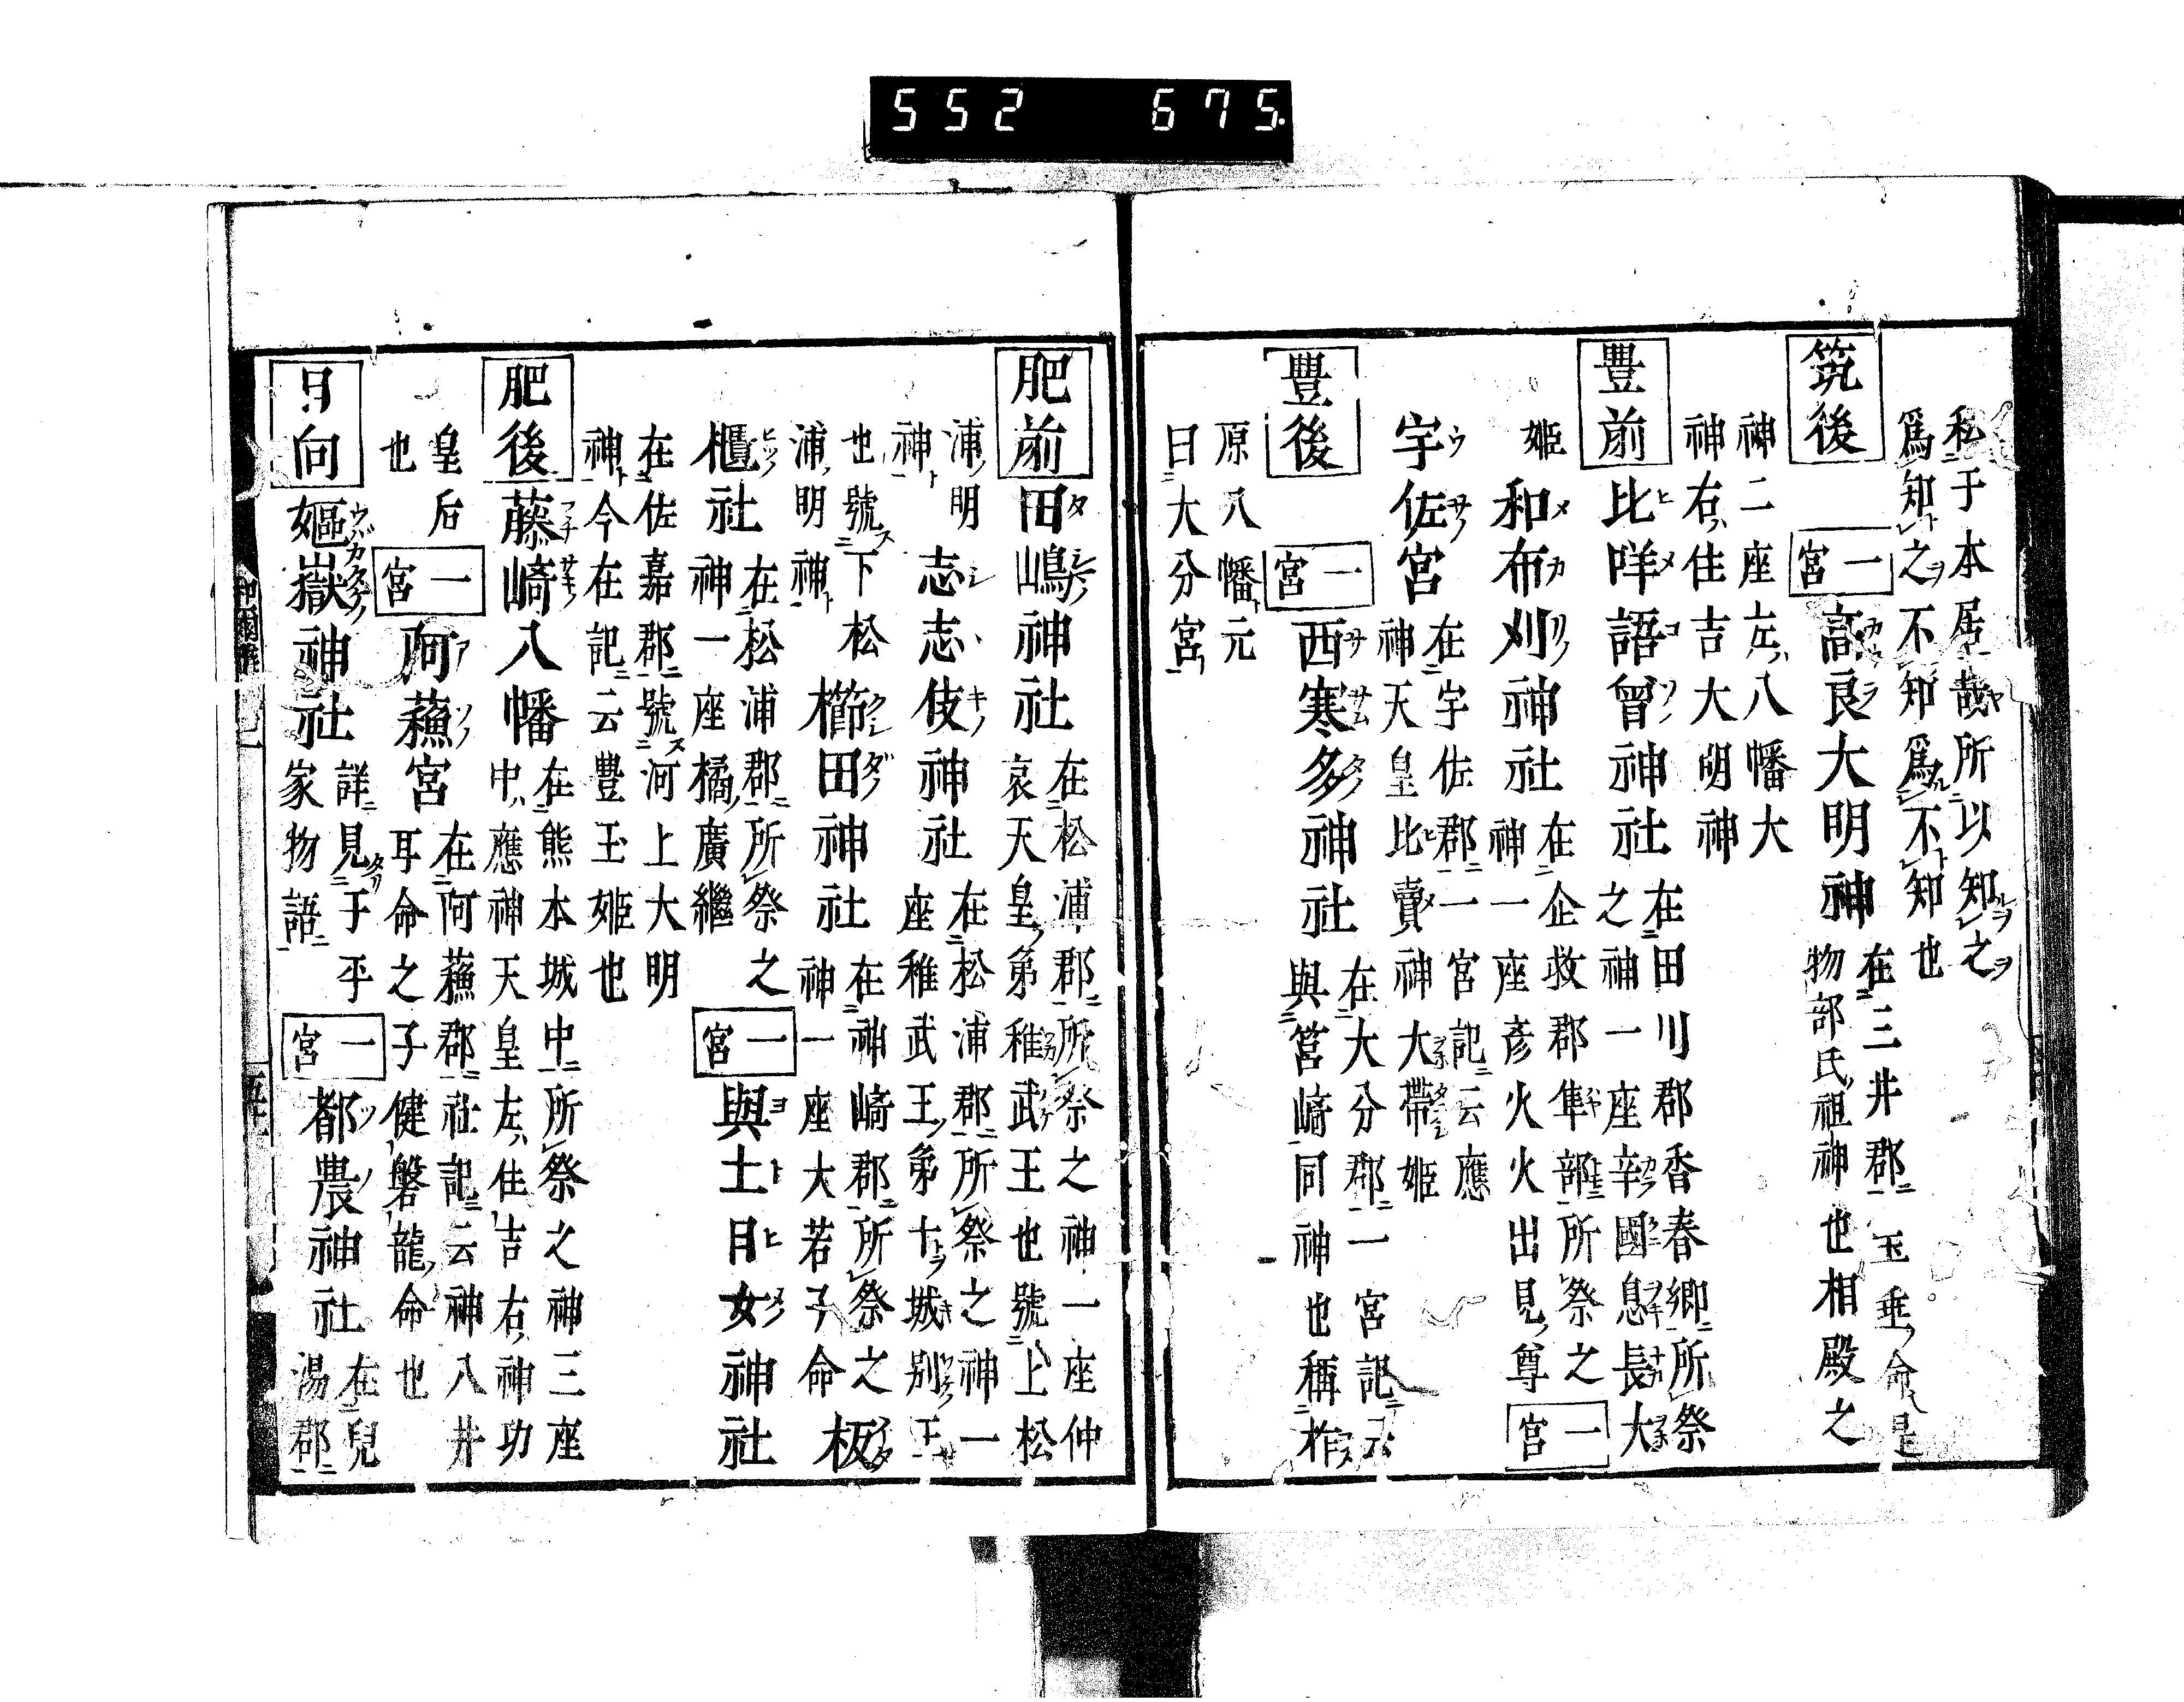 552 675.
私于本居哉所以知之
爲知之不知爲不知也
筑後 一宮 高良大明神 在三井郡玉垂命是
物部氏祖神也相殿之
神二座左八幡大
神右住吉大明神
豊前 比咩語曽神社 在田川郡香春郷所祭
之神一座辛國息長大
姫 和布刈神社 在企救郡隼部所祭之
神一座彦火火出見尊 一宮
宇佐宮 在宇佐郡一宮記云應
神天皇比賣神大帶姫
豊後 一宮 西寒多神社 在大分郡一宮記云
與筥﨑同神也稱柞
原八幡元
曰大分宮
肥前 田嶋神社 在松浦郡所祭之神一座仲
哀天皇第稚武王也號上松
浦明
神 志志伎神社 在松浦郡所祭之神一
座稚武王弟十城別王
也號下松
浦明神 櫛田神社 在神﨑郡所祭之
神一座大若子命 板
櫃社 在松浦郡所祭之
神一座橘廣繼 一宮 與土日女神社
在佐嘉郡號河上大明
神今在記云豐玉姫也
肥後 藤﨑八幡 在熊本城中所祭之神三座
中應神天皇左住吉右神功
皇后
也 一宮 阿蘓宮 在阿蘓郡社記云神八井
耳命之子健磐龍命也
日向 嫗嶽神社 詳見于平
家物語 一宮 都農神社 在兒
湯郡